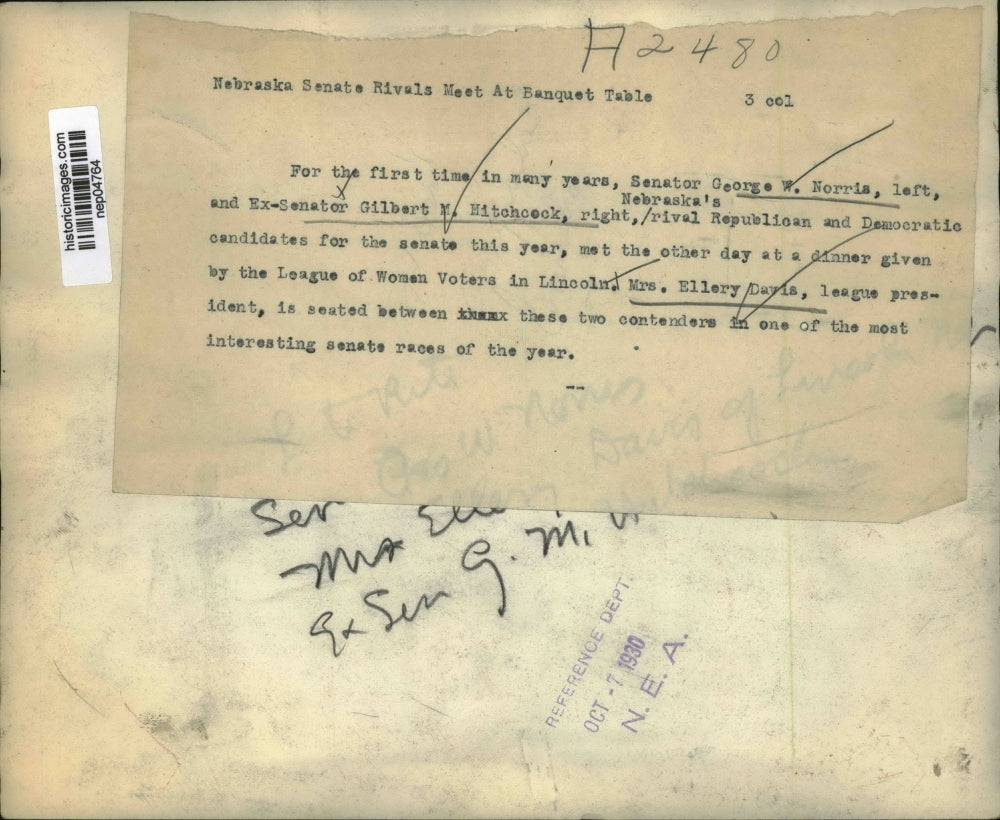 H2480
Nebraska Senate Rivals Meet At Banquet Table 3 col
For the first time in many years, Senator George W. Norris, left,
Nebraska's
and Ex-Senator Gilbert M. Hitchcock, right,/rival Republican and Democratic
candidates for the senate this year, met the other day at a dinner given
by the League of Women Voters in Lincoln. Mrs. Ellery Davis, league pres-
ident, is seated between these two contenders in one of the most
interesting senate races of the year.
--
historicimages.com
nep04764
Geo W Norris
Davis of Lincoln
Ellery
Hitchcock
Sen
Mrs Elle
Ex Sen G. M.
REFERENCE DEPT.
OCT -7 1930
N. E. A.